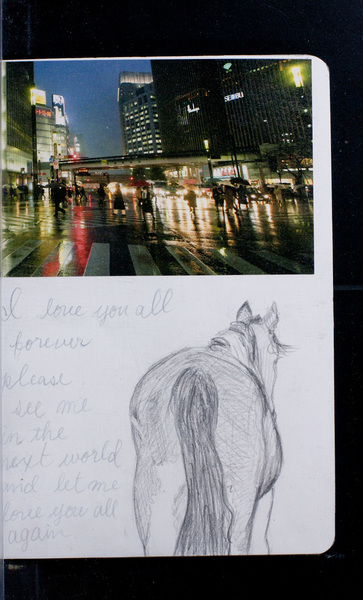 SEIBU
I love you all
forever
please
see me
in the
next world
and let me
love you all
again